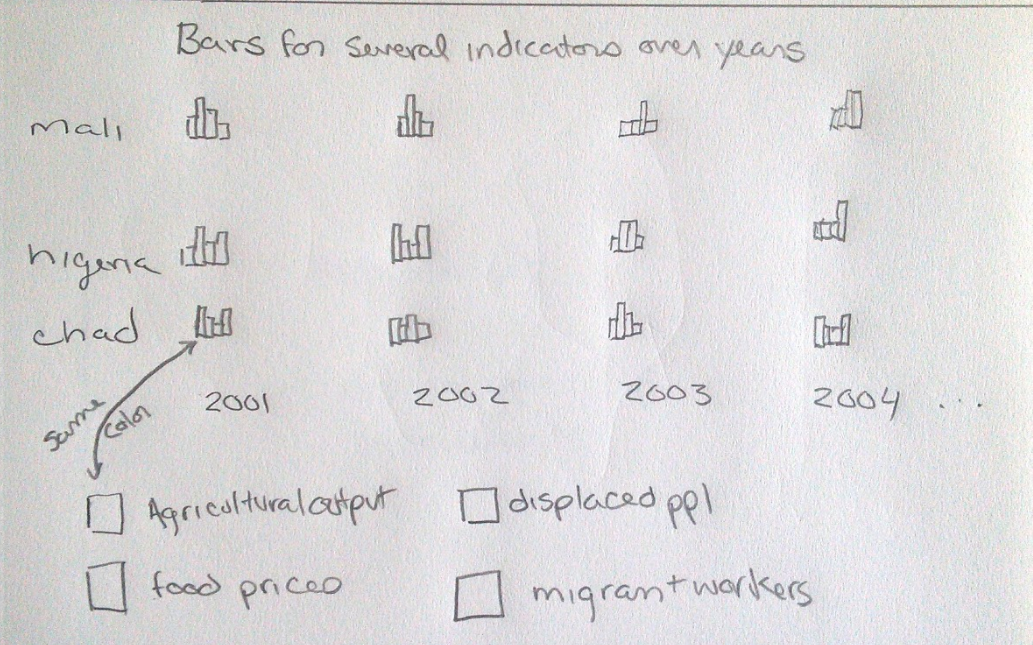 Bars for several indicators over years
mali
nigeria
chad
same color
2001 2002 2003 2004 ...
Agricultural output displaced ppl
food prices migrant workers